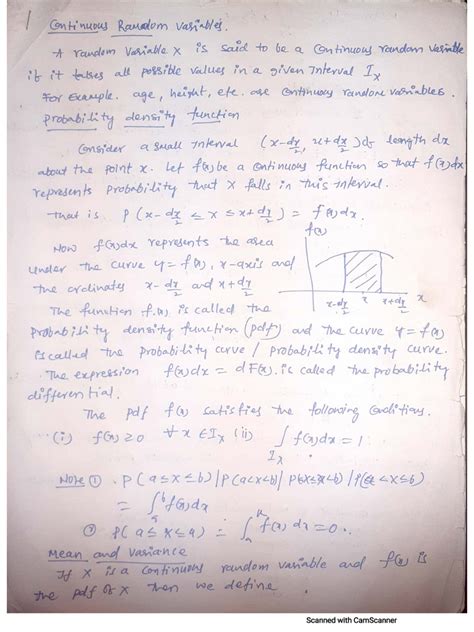 1 Continuous Random Variables.
A random variable X is said to be a continuous random variable
if it takes all possible values in a given interval I_x
For Example. age, height, etc. are continuous random variables.
probability density function
Consider a small interval (x-dx/2, x+dx/2) of length dx
about the point x. Let f(x) be a continuous function so that f(x)dx
represents probability that X falls in this interval.
That is P(x-dx/2 ≤ X ≤ x+dx/2) = f(x)dx.
f(x)
Now f(x)dx represents the area
under the curve y=f(x), x-axis and
the ordinates x-dx/2 and x+dx/2
x-dx/2 x x+dx/2 x
The function f(x) is called the
probability density function (pdf) and the curve y=f(x)
is called the probability curve / probability density curve.
The expression f(x)dx = dF(x). is called the probability
differential.
The pdf f(x) satisfies the following conditions.
(i) f(x) ≥ 0 ∀ x ∈ I_x (ii) ∫_{I_x} f(x)dx = 1
Note ① . P(a≤x≤b) | P(a<x<b) | P(a≤x<b) | P(a<x≤b)
= ∫_a^b f(x)dx
② P(a≤x≤a) = ∫_a^a f(x)dx = 0.
Mean and variance
If X is a continuous random variable and f(x) is
the pdf of X then we define
Scanned with CamScanner